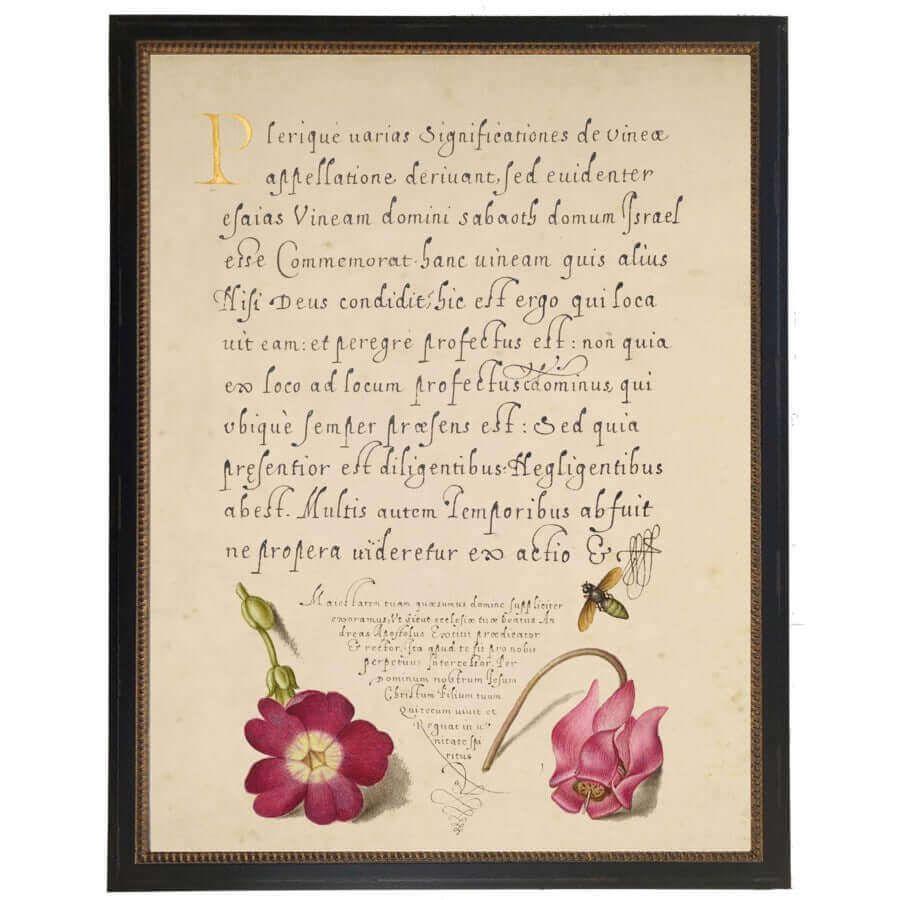 Plerique uarias Significationes de vineæ
appellatione deriuant, sed euidenter
esaias Vineam domini sabaoth domum Israel
esse Commemorat. hanc uineam quis alius
Nisi Deus condidit, hic est ergo qui loca
uit eam: et peregre profectus est: non quia
ex loco ad locum profectus dominus, qui
vbiquè semper præsens est: Sed quia
præsentior est diligentibus: Negligentibus
abest. Multis autem Temporibus abfuit
ne propera uideretur exactio &
Maiestatem tuam quæsumus domine suppliciter
exoramus, Vt sicut ecclesiæ tuæ beatus An
dreas Apostolus Extitit prædicator
& rector, ita apud te sit pro nobis
perpetuus Intercessor. Per
Dominum nostrum Iesum
Christum Filium tuum
Qui tecum uiuit et
Regnat in u
nitate spi
ritus